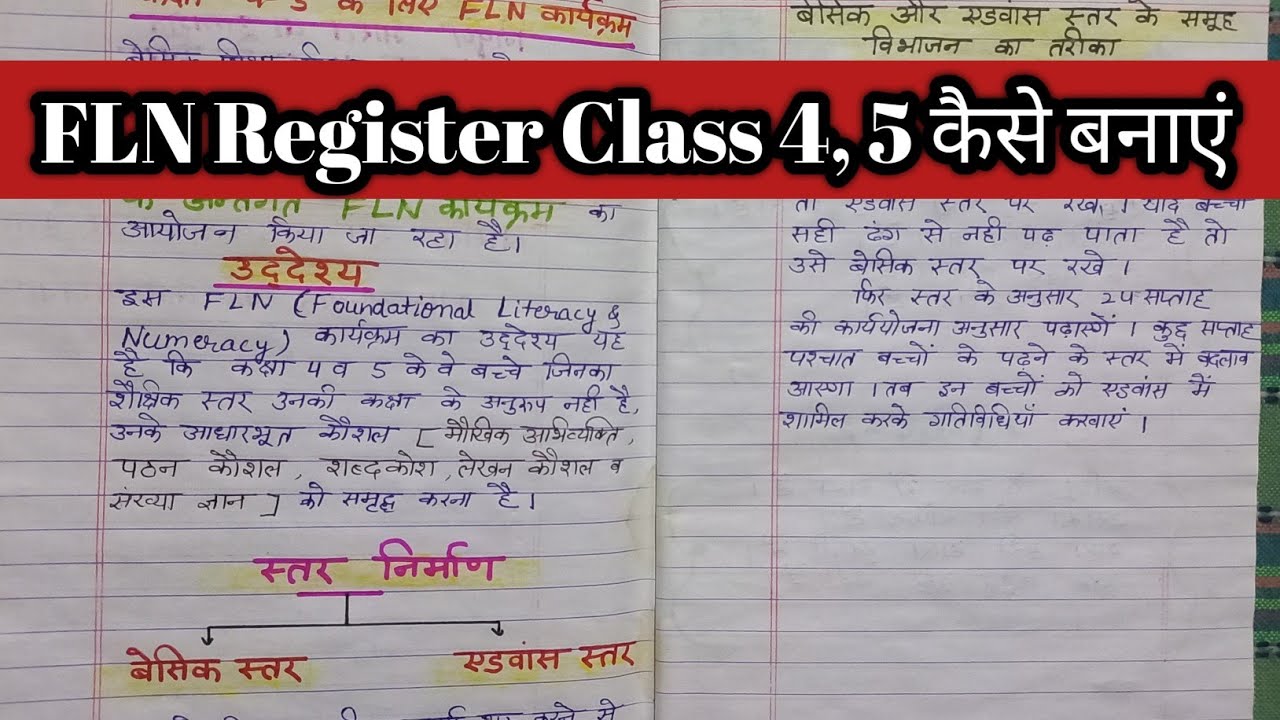 के लिए FLN कार्यक्रम
FLN Register Class 4, 5 कैसे बनाएं
अन्तर्गत FLN कार्यक्रम का
आयोजन किया जा रहा है।
उद्देश्य
इस FLN (Foundational Literacy &
Numeracy) कार्यक्रम का उद्देश्य यह
है कि कक्षा 4 व 5 के वे बच्चे जिनका
शैक्षिक स्तर उनकी कक्षा के अनुरूप नही है,
उनके आधारभूत कौशल [ मौखिक अभिव्यक्ति,
पठन कौशल, शब्दकोश, लेखन कौशल व
संख्या ज्ञान ] को समृद्ध करना है।
स्तर निर्माण
बेसिक स्तर
एडवांस स्तर
बेसिक और एडवांस स्तर के समूह
विभाजन का तरीका
तो एडवांस स्तर पर रखे। यदि बच्चा
सही ढंग से नही पढ़ पाता है तो
उसे बेसिक स्तर पर रखे।
फिर स्तर के अनुसार 24 सप्ताह
की कार्ययोजना अनुसार पढ़ाएंगें। कुछ सप्ताह
पश्चात बच्चों के पढ़ने के स्तर में बदलाव
आएगा। तब इन बच्चों को एडवांस में
शामिल करके गतिविधियाँ करवाएं।